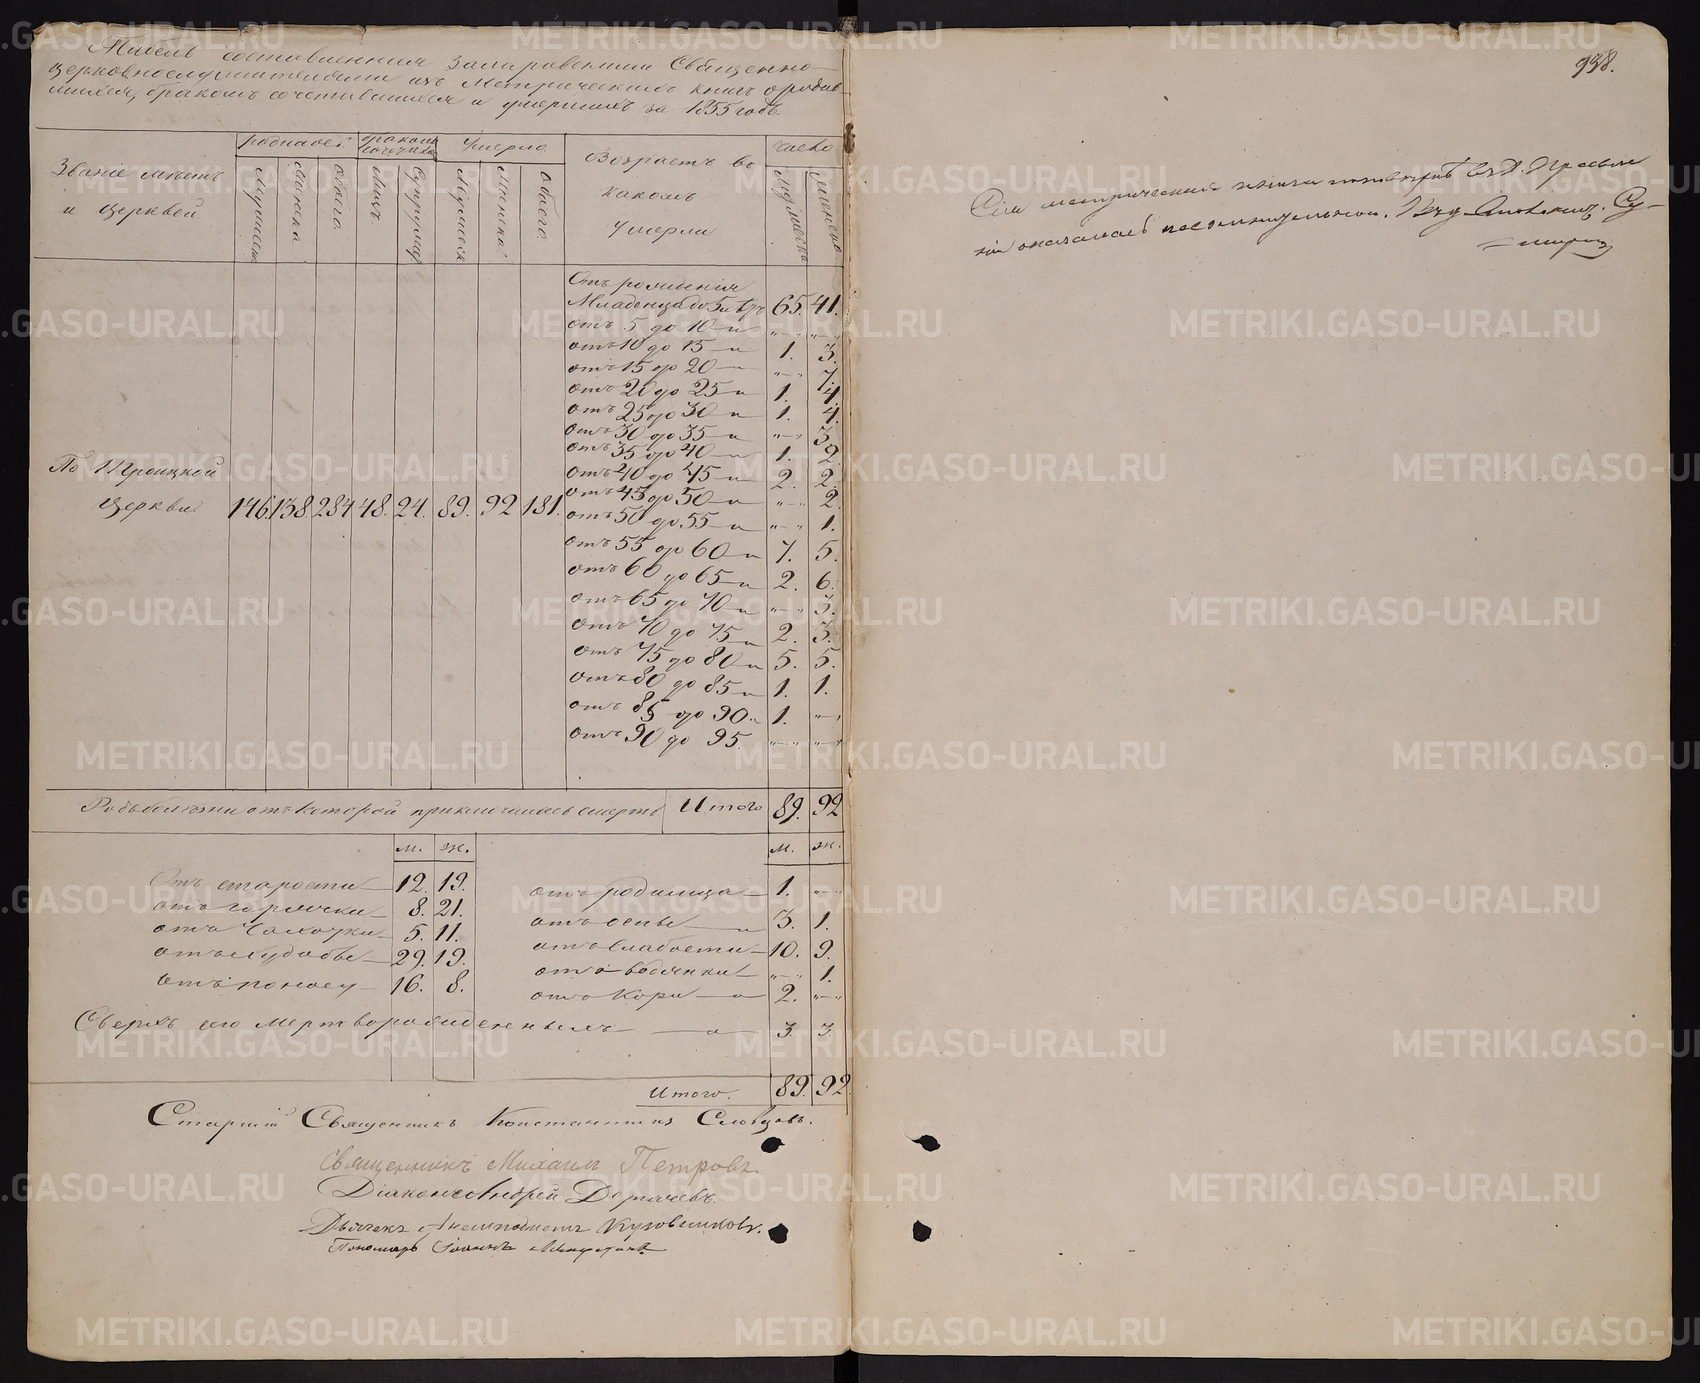 Табель составленная Заларовскими Священно-
церковнослужителями изъ Метрическихъ книгъ о родив-
шихся, бракомъ сочетавшихся и умершихъ за 1855 годъ.
Званіе мѣстъ и церквей
родилось
бракомъ сочетались
Умерло
Возрастъ въ какомъ Умерли
число
мужеска
женска
обоего
Лицъ
Супружествъ
мужеска
женска
обоего
мужеска
женска
Отъ рожденія
Младенца до 5и л. 65. 41.
отъ 5 до 10 - и " - " " - "
отъ 10 до 15 - и 1. 3.
отъ 15 до 20 - " - " 7.
отъ 20 до 25 - и 1. 4.
отъ 25 до 30 - и 1. 4.
отъ 30 до 35 - и " - " 3.
отъ 35 до 40 - и 1. 2.
отъ 40 до 45 - и 2. 2.
отъ 45 до 50 - и " - " 2.
отъ 50 до 55 - и " - " 1.
отъ 55 до 60 - и 7. 5.
отъ 60 до 65 - и 2. 6.
отъ 65 до 70 - и " - " 3.
отъ 70 до 75 - и 2. 3.
отъ 75 до 80 - и 5. 5.
отъ 80 до 85 - и 1. 1.
отъ 85 до 90 - и 1. " - "
отъ 90 до 95. " - " " - "
По Троицкой
церкви 146. 138. 284. 48. 24. 89. 92 181.
отъ которой приключилась смерть Итого 89. 92
м. ж. м. ж.
Отъ старости - 12. 19. отъ родимца - 1. " - "
отъ горячки - 8. 21. отъ оспы - 3. 1.
отъ чахотки - 5. 11. отъ слабости - 10. 9.
отъ худобы - 29. 19. отъ водянки - " - " 1.
отъ поносу - 16. 8. отъ кори - 2. " - "
Сверхъ сего мертворожденныхъ 3. 3.
Итого. 89. 92.
Старшій Священникъ Константинъ Словцовъ.
Священникъ Михаилъ Петровъ
Діаконъ Андрей Дергачевъ
Дьячекъ Анемподистъ Кузовниковъ.
Пономарь Іоаннъ
938.
Сіи метрическія книги
оказались
METRIKI.GASO-URAL.RU